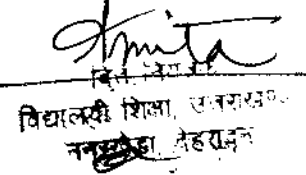 Amita
विद्यालयी शिक्षा, उत्तराखण्ड
ननूरखेड़ा, देहरादून